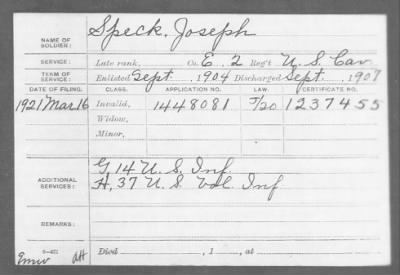 NAME OF SOLDIER: Speck, Joseph
SERVICE: Late rank, Co. E. 2 Reg't U.S. Cav.
TERM OF SERVICE: Enlisted Sept., 1904 Discharged Sept., 1907
DATE OF FILING. CLASS. APPLICATION NO. LAW. CERTIFICATE NO.
1921 Mar 16 Invalid, 1448081 1237455
Widow,
Minor,
ADDITIONAL SERVICES: G, 14 U.S. Inf.
H, 37 U.S. Vol. Inf
REMARKS:
Died , 1 , at